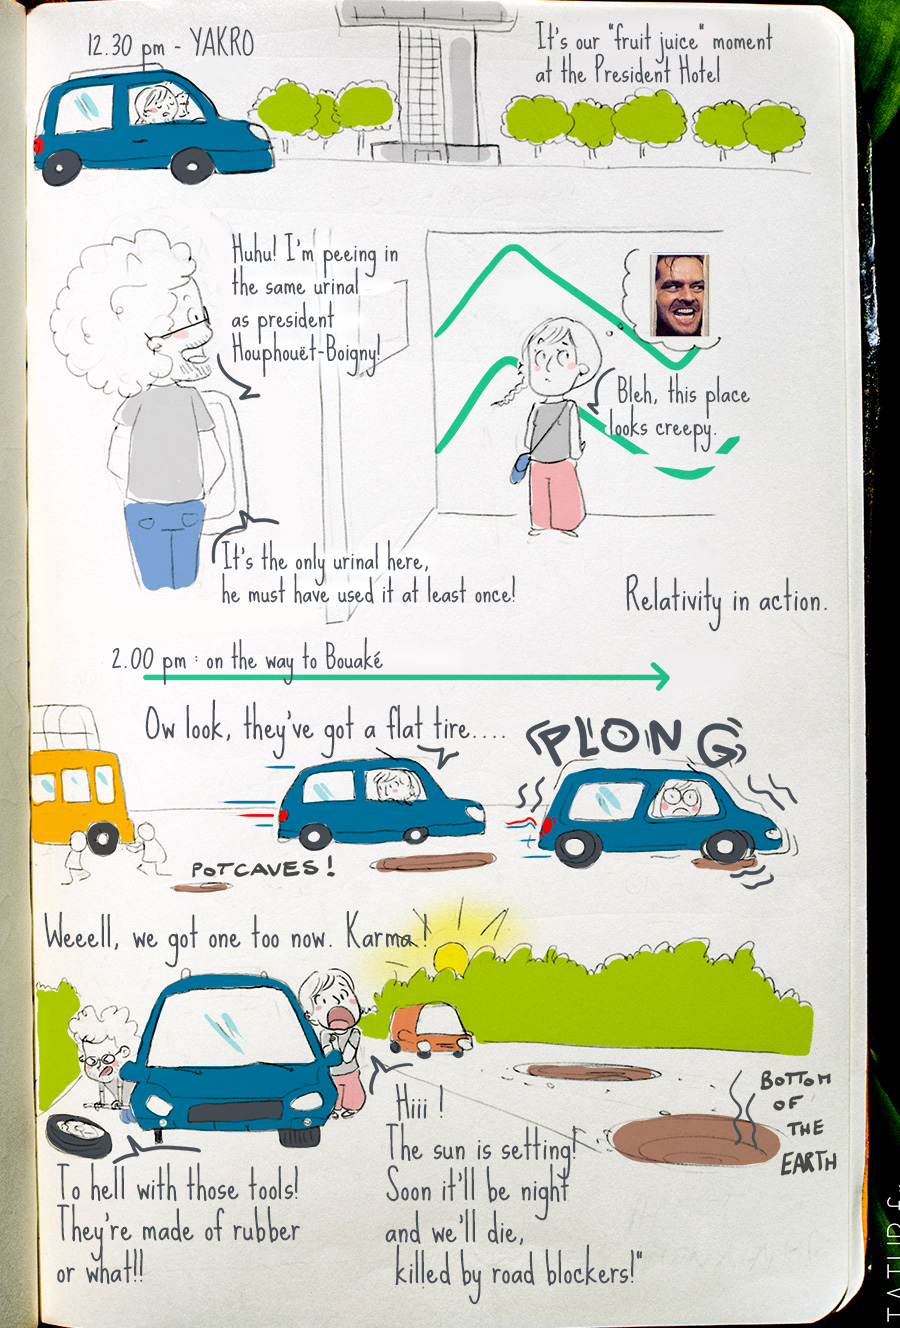 12.30 pm - YAKRO
It's our "fruit juice" moment
at the President Hotel
Huhu! I'm peeing in
the same urinal
as president
Houphouët-Boigny!
Bleh, this place
looks creepy.
It's the only urinal here,
he must have used it at least once!
Relativity in action.
2.00 pm : on the way to Bouaké
Ow look, they've got a flat tire....
PLONG
POTCAVES!
Weeell, we got one too now. Karma!
BOTTOM
OF
THE
EARTH
To hell with those tools!
They're made of rubber
or what!!
Hiii !
The sun is setting!
Soon it'll be night
and we'll die,
killed by road blockers!"